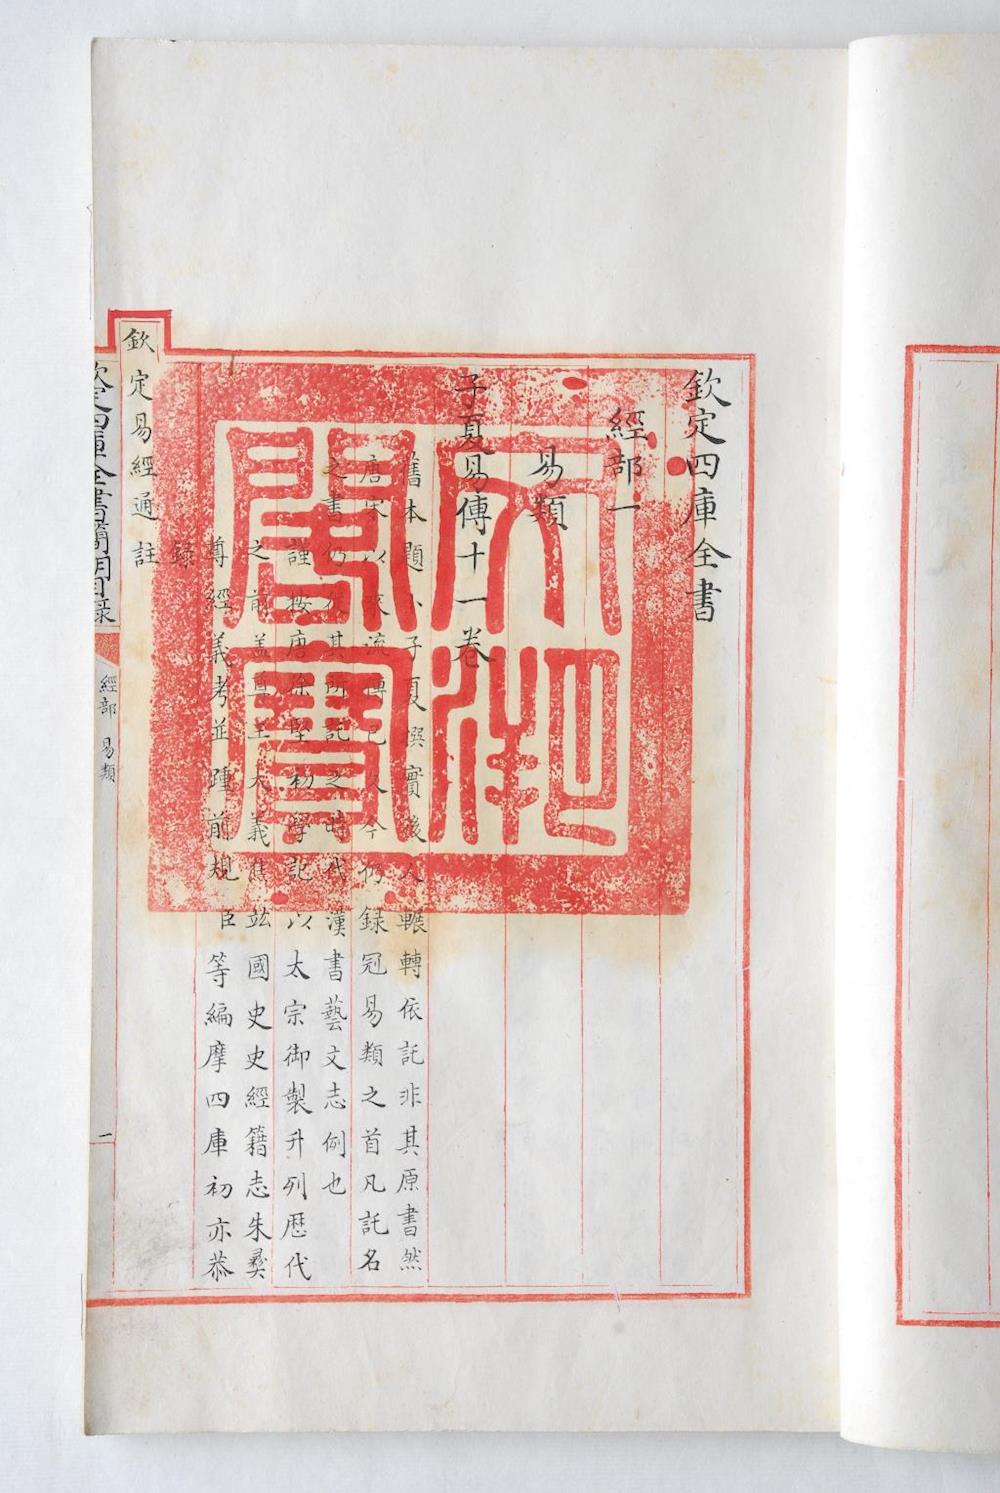 欽定四庫全書
經部一
易類
子夏易傳十一卷
舊本題卜子夏撰實後人輾轉依託非其原書然
唐宋以來流傳已久今仍録冠易類之首凡託名
之書仍從其所託之時代漢書藝文志例也
謹按唐徐堅初學記以太宗御製升列歴代
之前蓋尊王大義焦竑國史史經籍志朱彝
尊經義考並踵前規臣等編摩四庫初亦恭
録
欽定易經通註
欽定四庫全書簡明目録
經部 易類
一
文溯閣寶